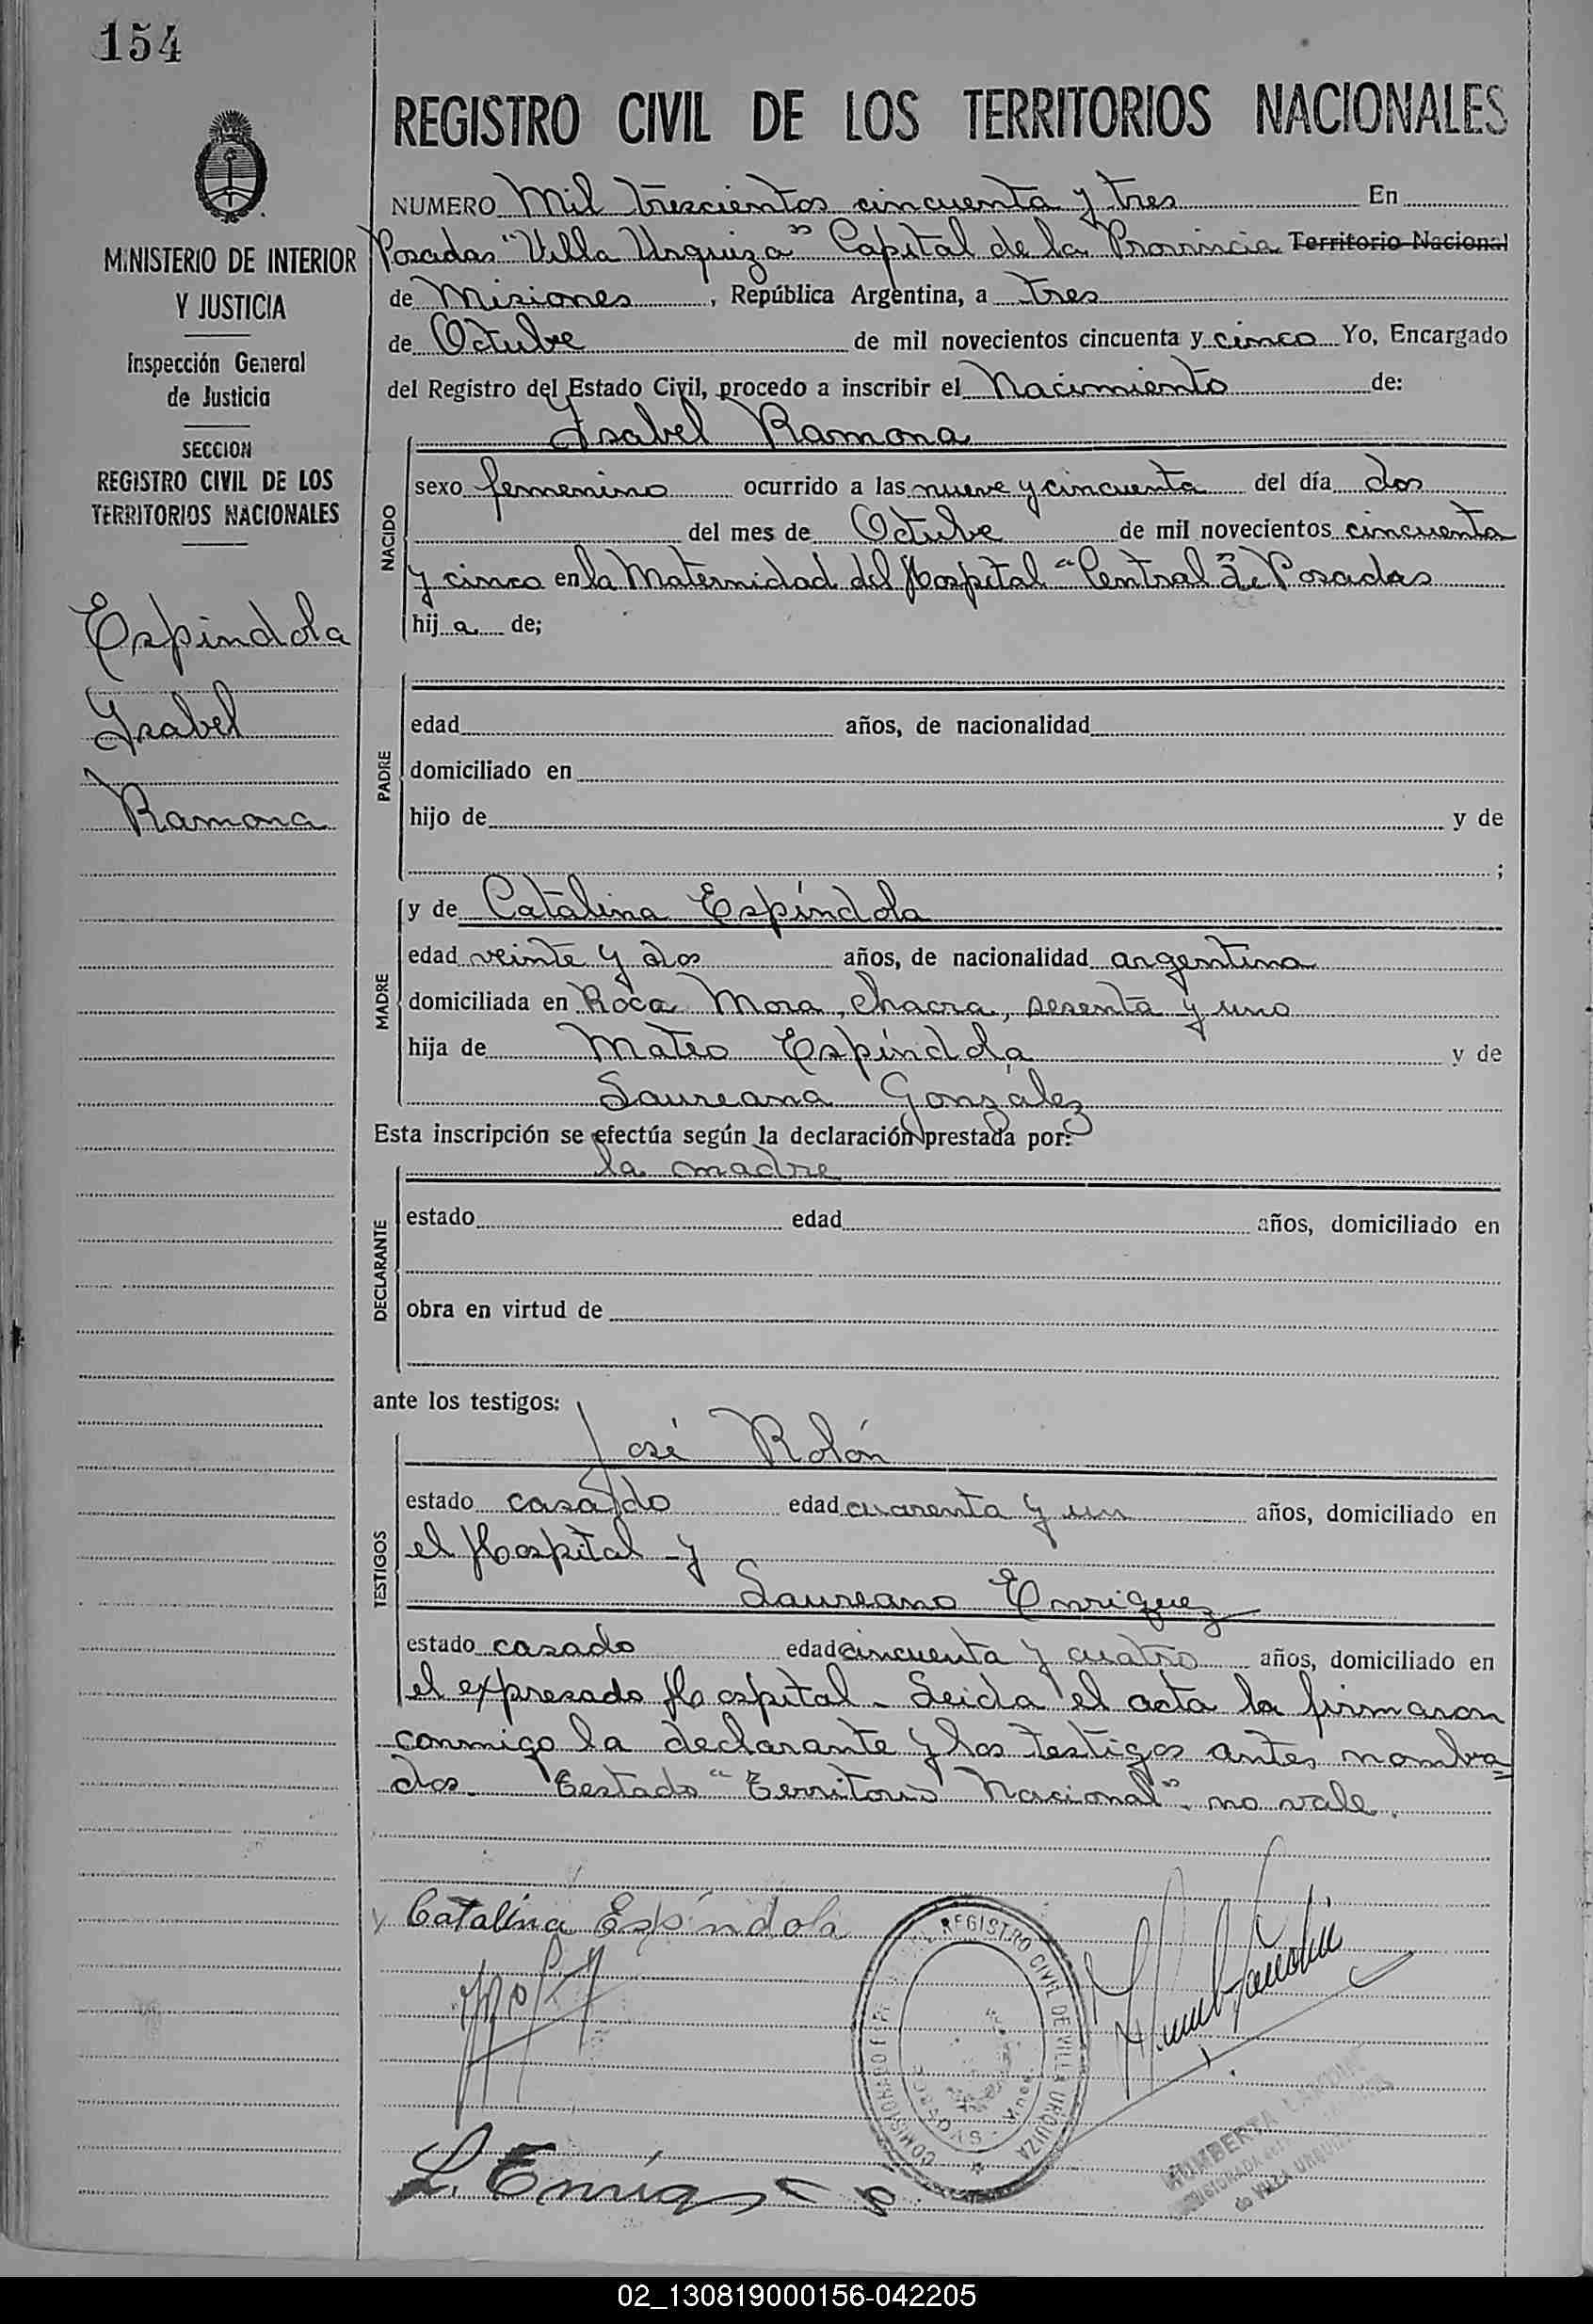 154
REGISTRO CIVIL DE LOS TERRITORIOS NACIONALES
MINISTERIO DE INTERIOR
Y JUSTICIA
Inspección General
de Justicia
SECCION
REGISTRO CIVIL DE LOS
TERRITORIOS NACIONALES
Espindola
Isabel
Ramona
NUMERO Mil trescientos cincuenta y tres En
Posadas "Villa Urquiza" Capital de la Provincia Territorio Nacional
de Misiones, República Argentina, a tres
de Octubre de mil novecientos cincuenta y cinco Yo, Encargado
del Registro del Estado Civil, procedo a inscribir el Nacimiento de:
Isabel Ramona
NACIDO
sexo femenino ocurrido a las nueve y cincuenta del día dos
del mes de Octubre de mil novecientos cincuenta
y cinco en la Maternidad del Hospital "Central" de Posadas
hija de;
PADRE
edad años, de nacionalidad
domiciliado en
hijo de y de
;
MADRE
y de Catalina Espíndola
edad veinte y dos años, de nacionalidad argentina
domiciliada en Roca Mora, chacra, sesenta y uno
hija de Mateo Espíndola y de
Laureana González
Esta inscripción se efectúa según la declaración prestada por:
la madre
DECLARANTE
estado edad años, domiciliado en
obra en virtud de
ante los testigos:
José Rolón
TESTIGOS
estado casado edad cuarenta y un años, domiciliado en
el Hospital y
Laureano Enriquez
estado casado edad cincuenta y cuatro años, domiciliado en
el expresado Hospital. Leida el acta la firmaron
conmigo la declarante y los testigos antes nombra=
dos. Testado "Territorio Nacional". no vale.
Catalína Espíndola
REGISTRO CIVIL DE VILLA URQUIZA
L. Enríq
HUMBERTA
de VILLA URQUIZA
02_130819000156-042205